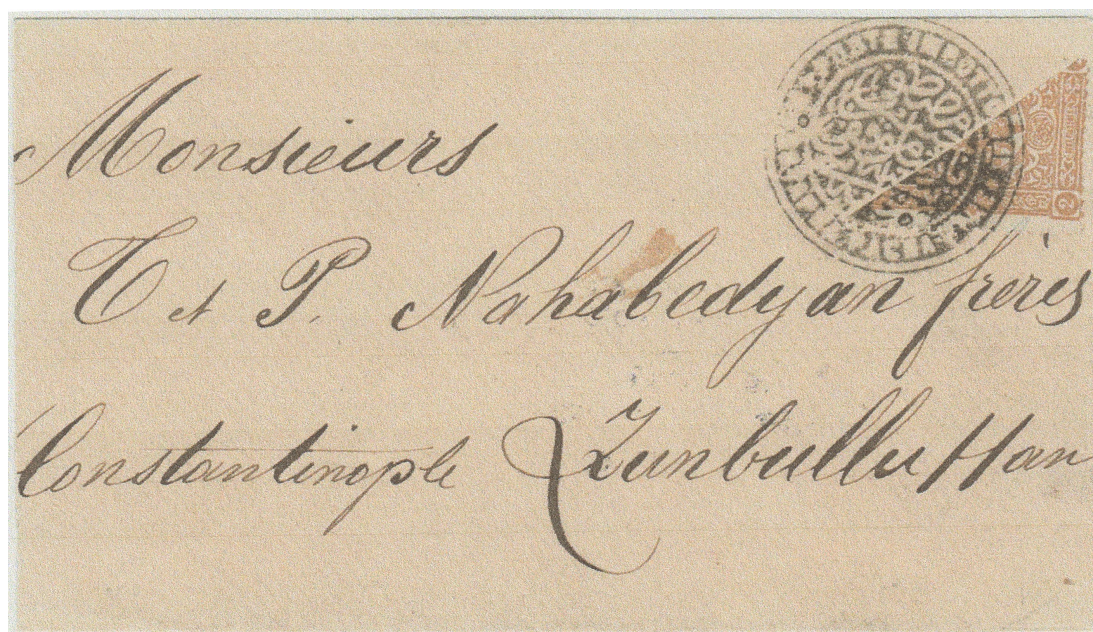 Monsieurs
T et P. Nahabedyan frères
Constantinople Zunbullu Han
2